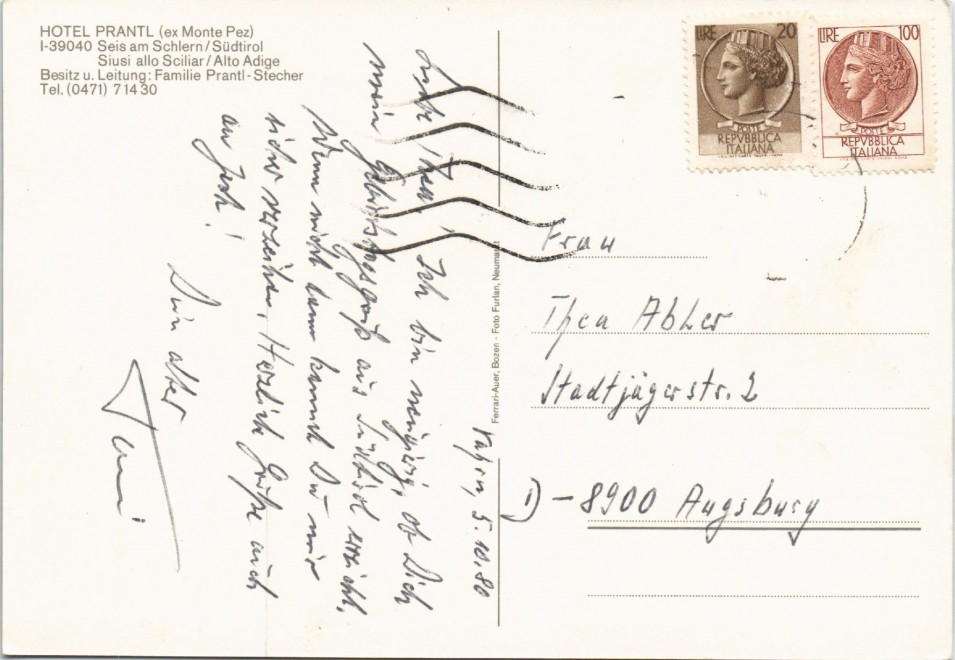 HOTEL PRANTL (ex Monte Pez)
I-39040 Seis am Schlern/Südtirol
Siusi allo Sciliar/Alto Adige
Besitz u. Leitung: Familie Prantl-Stecher
Tel. (0471) 71430
LIRE 20
POSTE
REPVBBLICA
ITALIANA
LIRE 100
POSTE
REPVBBLICA
ITALIANA
5.10.80
Liebe Thea! Ich bin neugierig, ob Dich
mein Geburtstagsgruß aus Südtirol erreicht.
Wenn nicht dann kannst Du mir
sicher verzeihen. Herzliche Grüße auch
an
Dein alter
Ferrari-Auer, Bozen - Foto Furlan, Neumarkt
Frau
Thea Abler
Stadtjägerstr. 2
D-8900 Augsburg